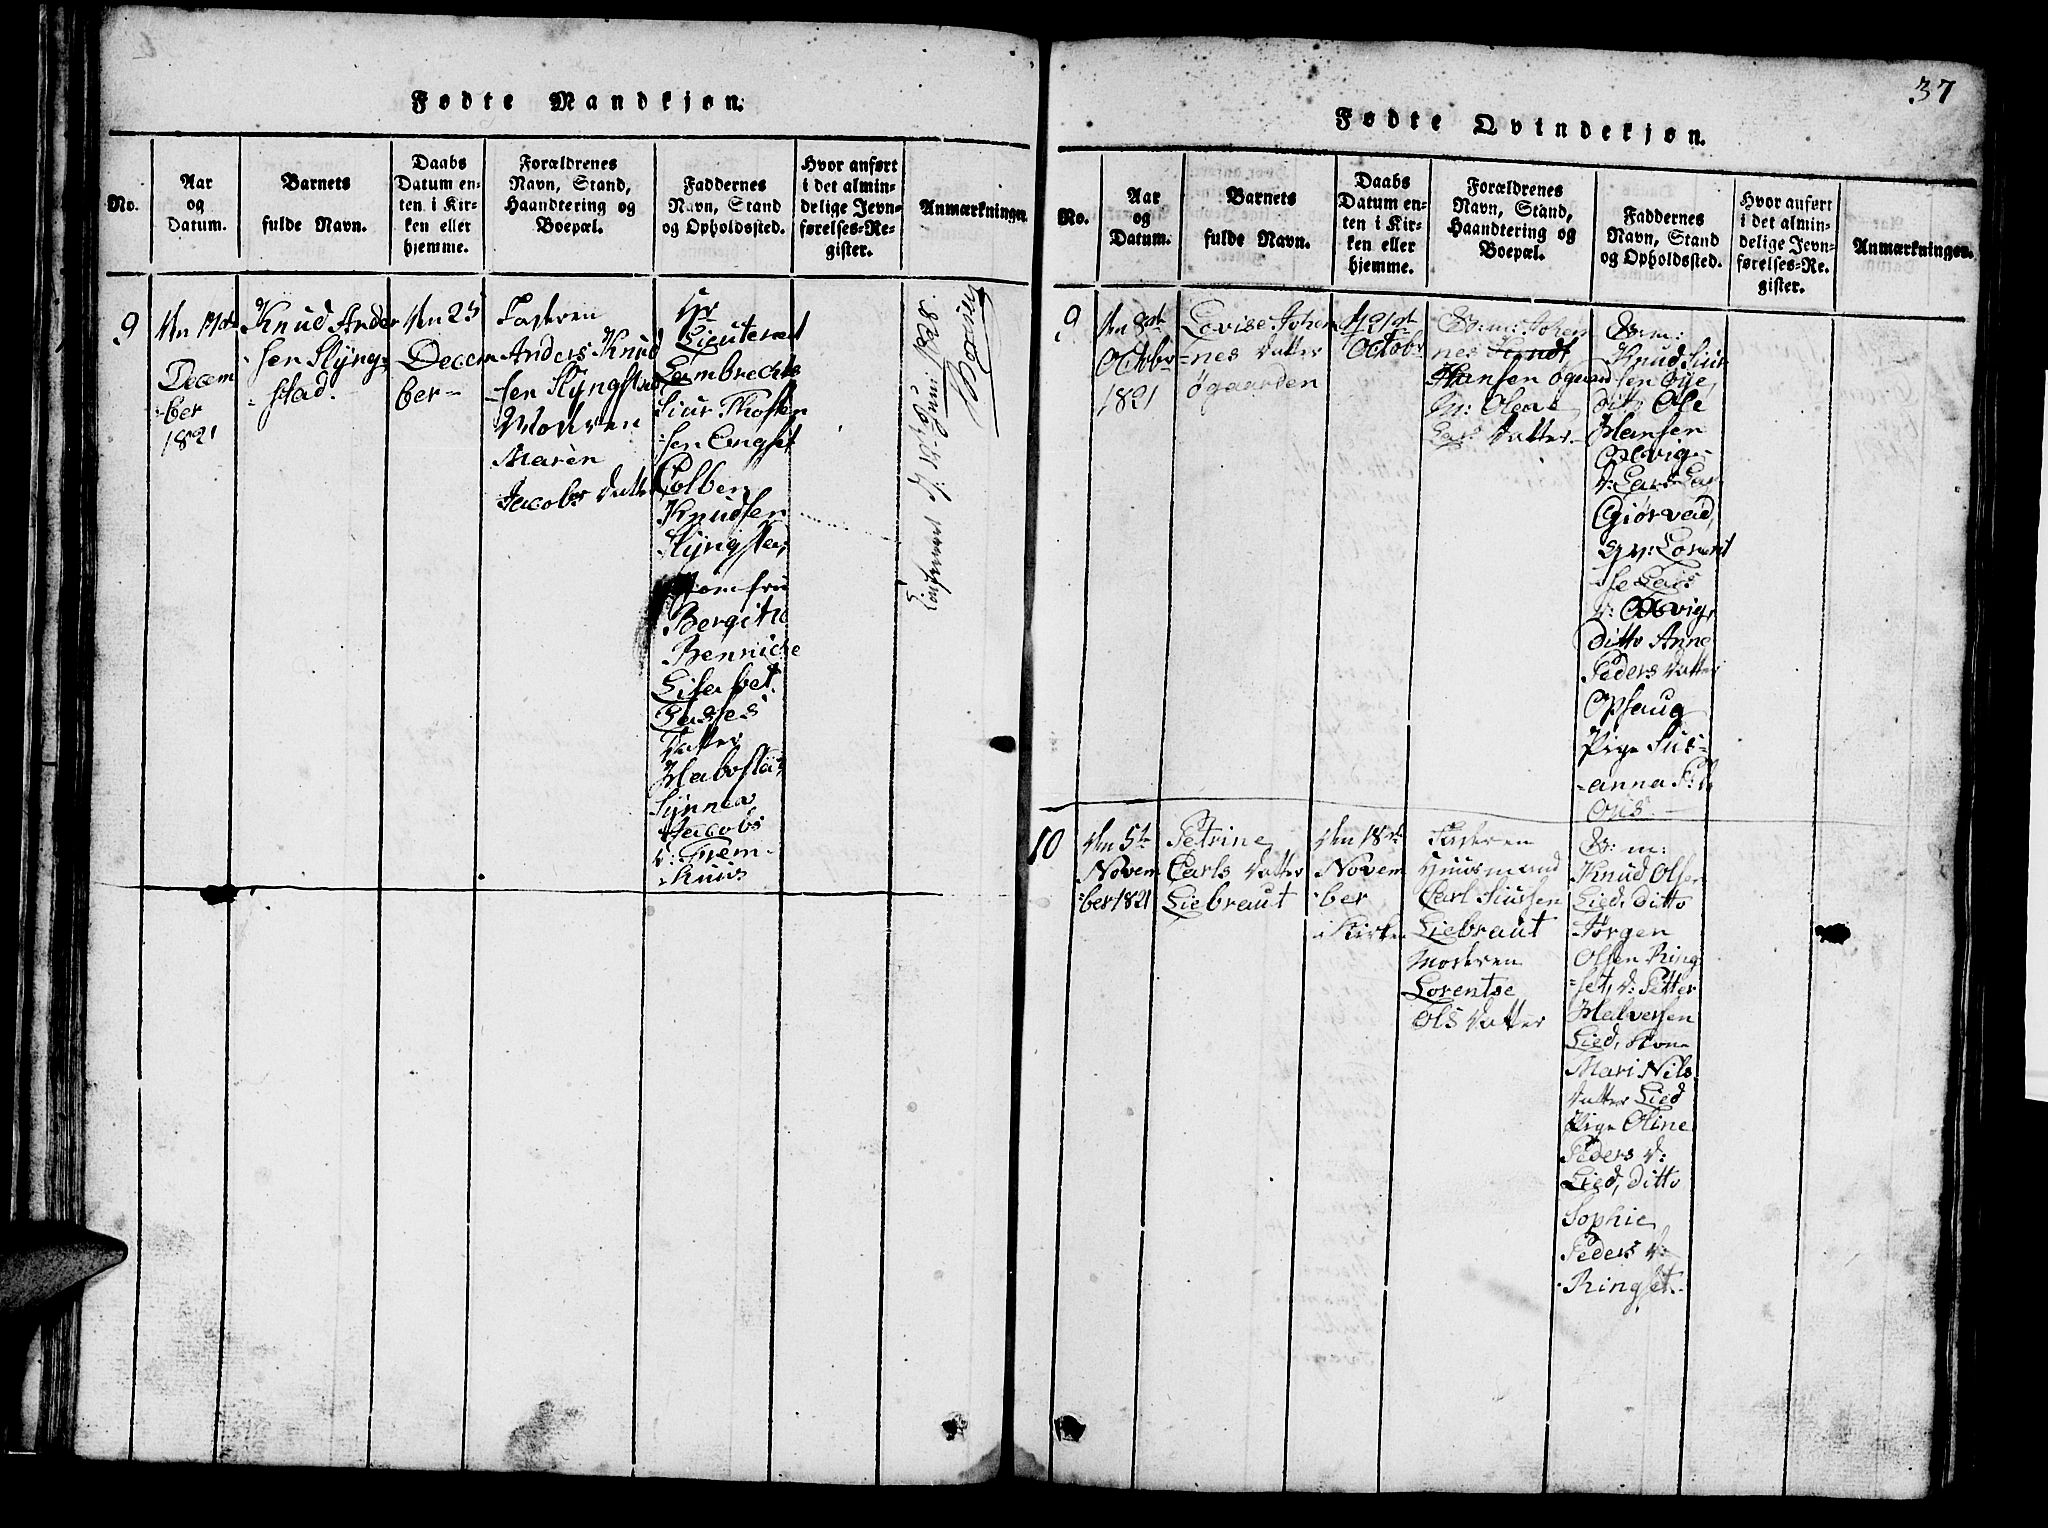 Fødte Mandkjøn.
No.
Aar
og
Datum.
Barnets
fulde Navn.
Daabs
Datum en-
ten i Kir-
ken eller
hjemme.
Forældrenes
Navn, Stand,
Haandtering og
Boepæl.
Faddernes
Navn, Stand
og Opholdssted.
Hvor anført
i det almin-
delige Jevn-
førelses-Re-
gister.
Anmærkninger.
9
Decem
ber
1821
Knud Ander
sen Slÿng-
stad.
den 25
Decem
ber
Faderen
Anders Knud
sen Slÿngstad
Moderen
Maren
Jacobs Datter
Hr
Lieutenant
Lembrechts
Siur
sen
Colben
Knudsen
Slÿngstad
Jomfru
Bergitte
Bennicke
Lisabet
Lasses
Datter
Habostad
Sÿnnea
Jacobs
d: Frem-
huus
Fødte Qvindekjøn.
37
No.
Aar
og
Datum.
Barnets
fulde Navn.
Daabs
Datum en-
ten i Kir-
ken eller
hjemme.
Forældrenes
Navn, Stand,
Haandtering og
Boepæl.
Faddernes
Navn, Stand
og Opholdssted.
Hvor anført
i det almin-
delige Jevn-
førelses-Re-
gister.
Anmærkninger.
9
Octobr
1821
Lovise Johan
nes Datter
Øgaarden
d 21de
Octobr
G: m: Johan
nes
Hansen Øgaard
M: Olave
Datter
G: m:
Knud Siur
sen Øye,
dito Ole
Hansen
Gjørvad,
Lorent
se Lars
ditto Anne
Peders Datter
Opsaug
Pige Sus-
anna
10
den 5te
Novem
ber 1821
Petrine
Carls Datter
Liebraut
den 18de
Novem
ber
i Kirken
Faderen
Huusmand
Carl Siursen
Liebraut
Moderen
Lorentse
Ols Datter
G: m:
Knud Olsen
Lied, ditto
Jørgen
Olsen Ring
set, d: Petter
Halversen
Lied, Kone
Mari Nils
Datter Lied
Pige Oline
Peders d:
Lied, ditto
Sophie
Peders d:
Ringset.